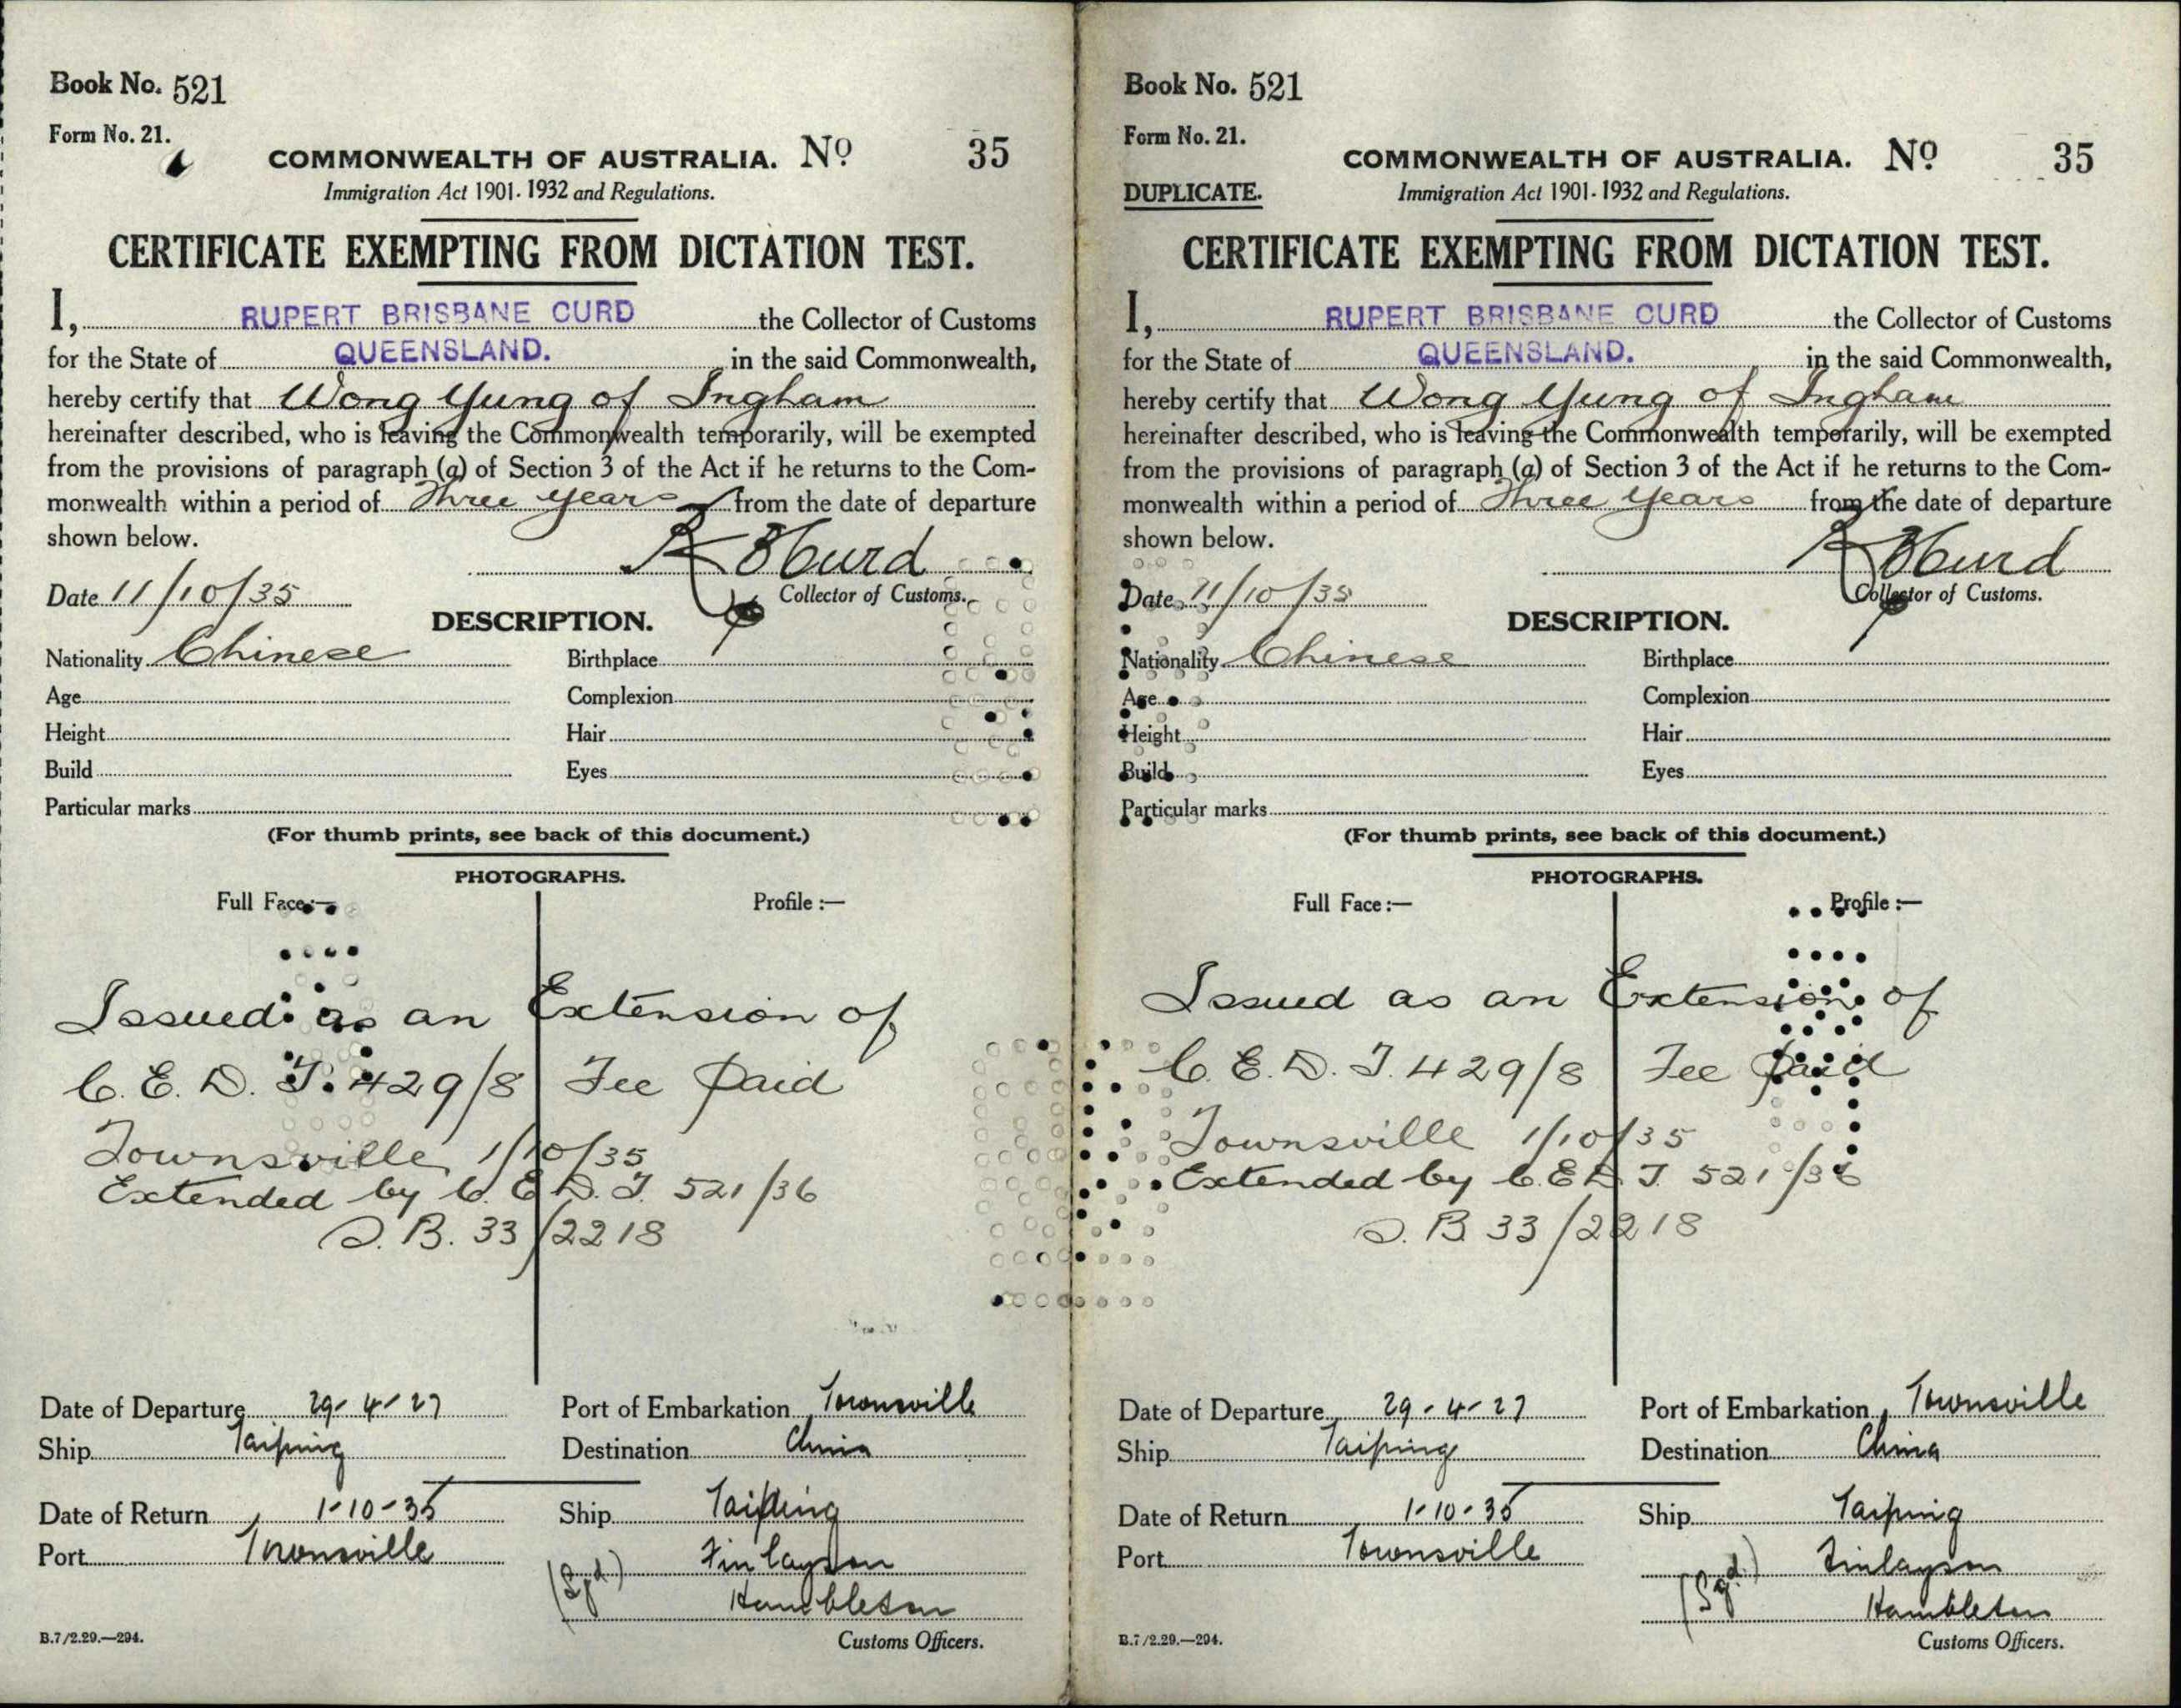 Book No. 521
Form No. 21.
COMMONWEALTH OF AUSTRALIA. No 35
Immigration Act 1901-1932 and Regulations.
CERTIFICATE EXEMPTING FROM DICTATION TEST.
I, RUPERT BRISBANE CURD the Collector of Customs
for the State of QUEENSLAND. in the said Commonwealth,
hereby certify that Wong Yung of Ingham
hereinafter described, who is leaving the Commonwealth temporarily, will be exempted
from the provisions of paragraph (a) of Section 3 of the Act if he returns to the Com-
monwealth within a period of Three years from the date of departure
shown below.
R B Curd
Date 11/10/35 Collector of Customs.
DESCRIPTION.
Nationality Chinese Birthplace
Age Complexion
Height Hair
Build Eyes
Particular marks
(For thumb prints, see back of this document.)
PHOTOGRAPHS.
Full Face:— Profile :—
Issued as an Extension of
C. E. D. T. 429/8 Fee paid
Townsville 1/10/35
Extended by C. E. D. T. 521/36
B. 33/2218
Date of Departure 29-4-27 Port of Embarkation Townsville
Ship Taiping Destination China
Date of Return 1-10-35 Ship Taiping
Port Townsville (Sgd) Finlayson
Hambleton
B.7/2.29.—294. Customs Officers.
Book No. 521
Form No. 21.
COMMONWEALTH OF AUSTRALIA. No 35
DUPLICATE. Immigration Act 1901-1932 and Regulations.
CERTIFICATE EXEMPTING FROM DICTATION TEST.
I, RUPERT BRISBANE CURD the Collector of Customs
for the State of QUEENSLAND. in the said Commonwealth,
hereby certify that Wong Yung of Ingham
hereinafter described, who is leaving the Commonwealth temporarily, will be exempted
from the provisions of paragraph (a) of Section 3 of the Act if he returns to the Com-
monwealth within a period of Three years from the date of departure
shown below.
R B Curd
Date 11/10/35 Collector of Customs.
DESCRIPTION.
Nationality Chinese Birthplace
Age Complexion
Height Hair
Build Eyes
Particular marks
(For thumb prints, see back of this document.)
PHOTOGRAPHS.
Full Face :— Profile :—
Issued as an Extension of
C. E. D. T. 429/8 Fee paid
Townsville 1/10/35
Extended by C. E D T. 521/36
B 33/2218
Date of Departure 29-4-27 Port of Embarkation Townsville
Ship Taiping Destination China
Date of Return 1-10-35 Ship Taiping
Port Townsville (Sgd.) Finlayson
Hambleton
B.7/2.29.—294. Customs Officers.